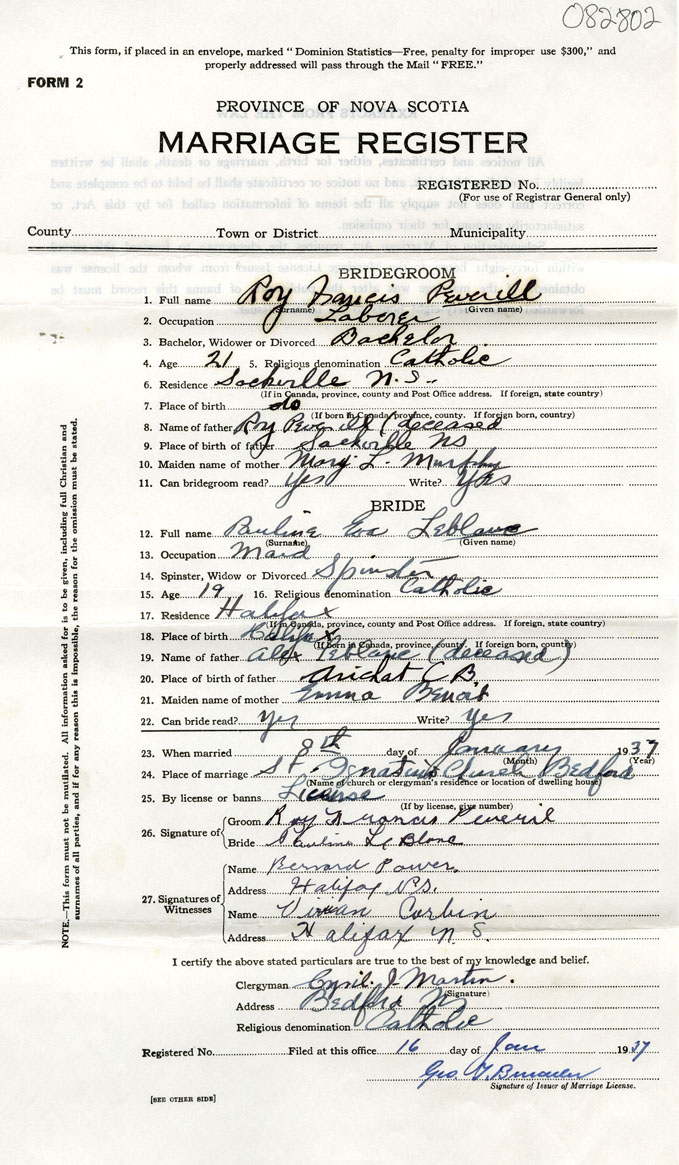 082802
This form, if placed in an envelope, marked "Dominion Statistics—Free, penalty for improper use $300," and
properly addressed will pass through the Mail "FREE."
FORM 2
PROVINCE OF NOVA SCOTIA
MARRIAGE REGISTER
REGISTERED No.
(For use of Registrar General only)
County Town or District Municipality
BRIDEGROOM
1. Full name Roy Francis Peverill
(Surname) (Given name)
2. Occupation Laborer
3. Bachelor, Widower or Divorced Bachelor
4. Age 21 5. Religious denomination Catholic
6. Residence Sackville N.S.
(If in Canada, province, county and Post Office address. If foreign, state country)
7. Place of birth do
(If born in Canada, province, county. If foreign born, country)
8. Name of father Roy Peverill (deceased
9. Place of birth of father Sackville NS
10. Maiden name of mother Mary L. Murphy
11. Can bridegroom read? Yes Write? Yes
BRIDE
12. Full name Pauline Eva Leblanc
(Surname) (Given name)
13. Occupation Maid
14. Spinster, Widow or Divorced Spinster
15. Age 19 16. Religious denomination Catholic
17. Residence Halifax
(If in Canada, province, county and Post Office address. If foreign, state country)
18. Place of birth Halifax
(If born in Canada, province, county. If foreign born, country)
19. Name of father Alex Leblanc (deceased)
20. Place of birth of father Arichat C.B.
21. Maiden name of mother Emma Benoit
22. Can bride read? Yes Write? Yes
23. When married 8th day of January 1937
(Month) (Year)
24. Place of marriage St. Ignatius Church Bedford
(Name of church or clergyman's residence or location of dwelling house)
25. By license or banns License
(If by license, give number)
26. Signature of Groom Roy Francis Peveril
Bride Pauline Le Blanc
27. Signatures of Witnesses Name Bernard Power
Address Halifax N.S.
Name Vivian Corbin
Address Halifax N.S.
I certify the above stated particulars are true to the best of my knowledge and belief.
Clergyman Cyril J. Martin.
(Signature)
Address Bedford NS
Religious denomination Catholic
Registered No. Filed at this office 16 day of Jan 1937
Geo
Signature of Issuer of Marriage License.
[SEE OTHER SIDE]
NOTE.—This form must not be mutilated. All information asked for is to be given, including full Christian and
surnames of all parties, and if for any reason this is impossible, the reason for the omission must be stated.